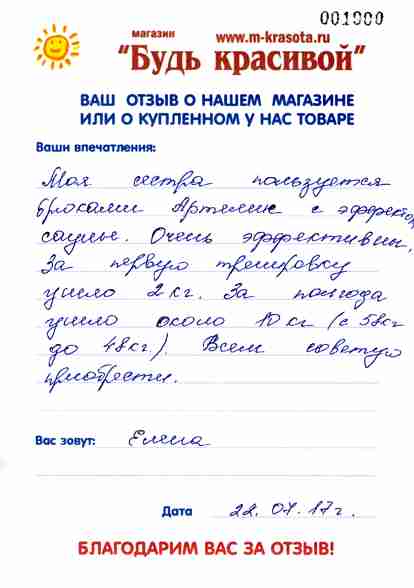 001000
магазин www.m-krasota.ru
"Будь красивой"
ВАШ ОТЗЫВ О НАШЕМ МАГАЗИНЕ
ИЛИ О КУПЛЕННОМ У НАС ТОВАРЕ
Ваши впечатления:
Моя сестра пользуется
брюками Артемис с эффектом
сауны. Очень эффективны,
За первую тренировку
ушло 2 кг. За полгода
ушло около 10 кг (с 58 кг
до 48 кг.). Всем советую
приобрести.
Вас зовут: Елена
Дата 22.07.17 г.
БЛАГОДАРИМ ВАС ЗА ОТЗЫВ!